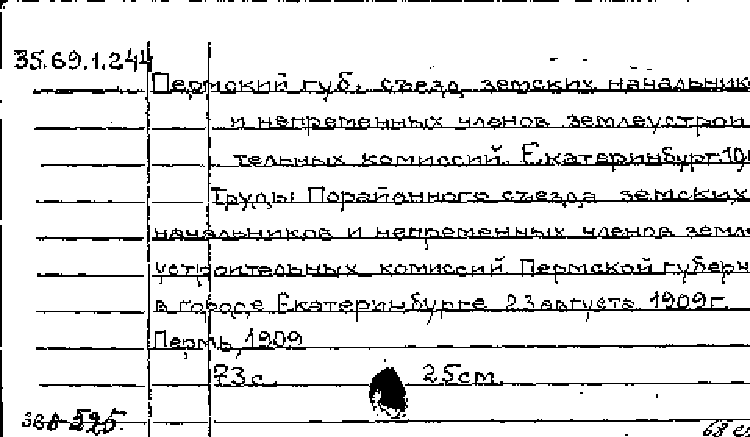 35.69.1.244
Пермский губ. съезд земских начальник
и непременных членов землеустрои
тельных комиссий. Екатеринбург. 19
Труды Порайонного съезда земских
начальников и непременных членов земле
устроительных комиссий Пермской губерн
в городе Екатеринбурге 23 августа 1909 г.
Пермь, 1909
73 с. 25 cm.